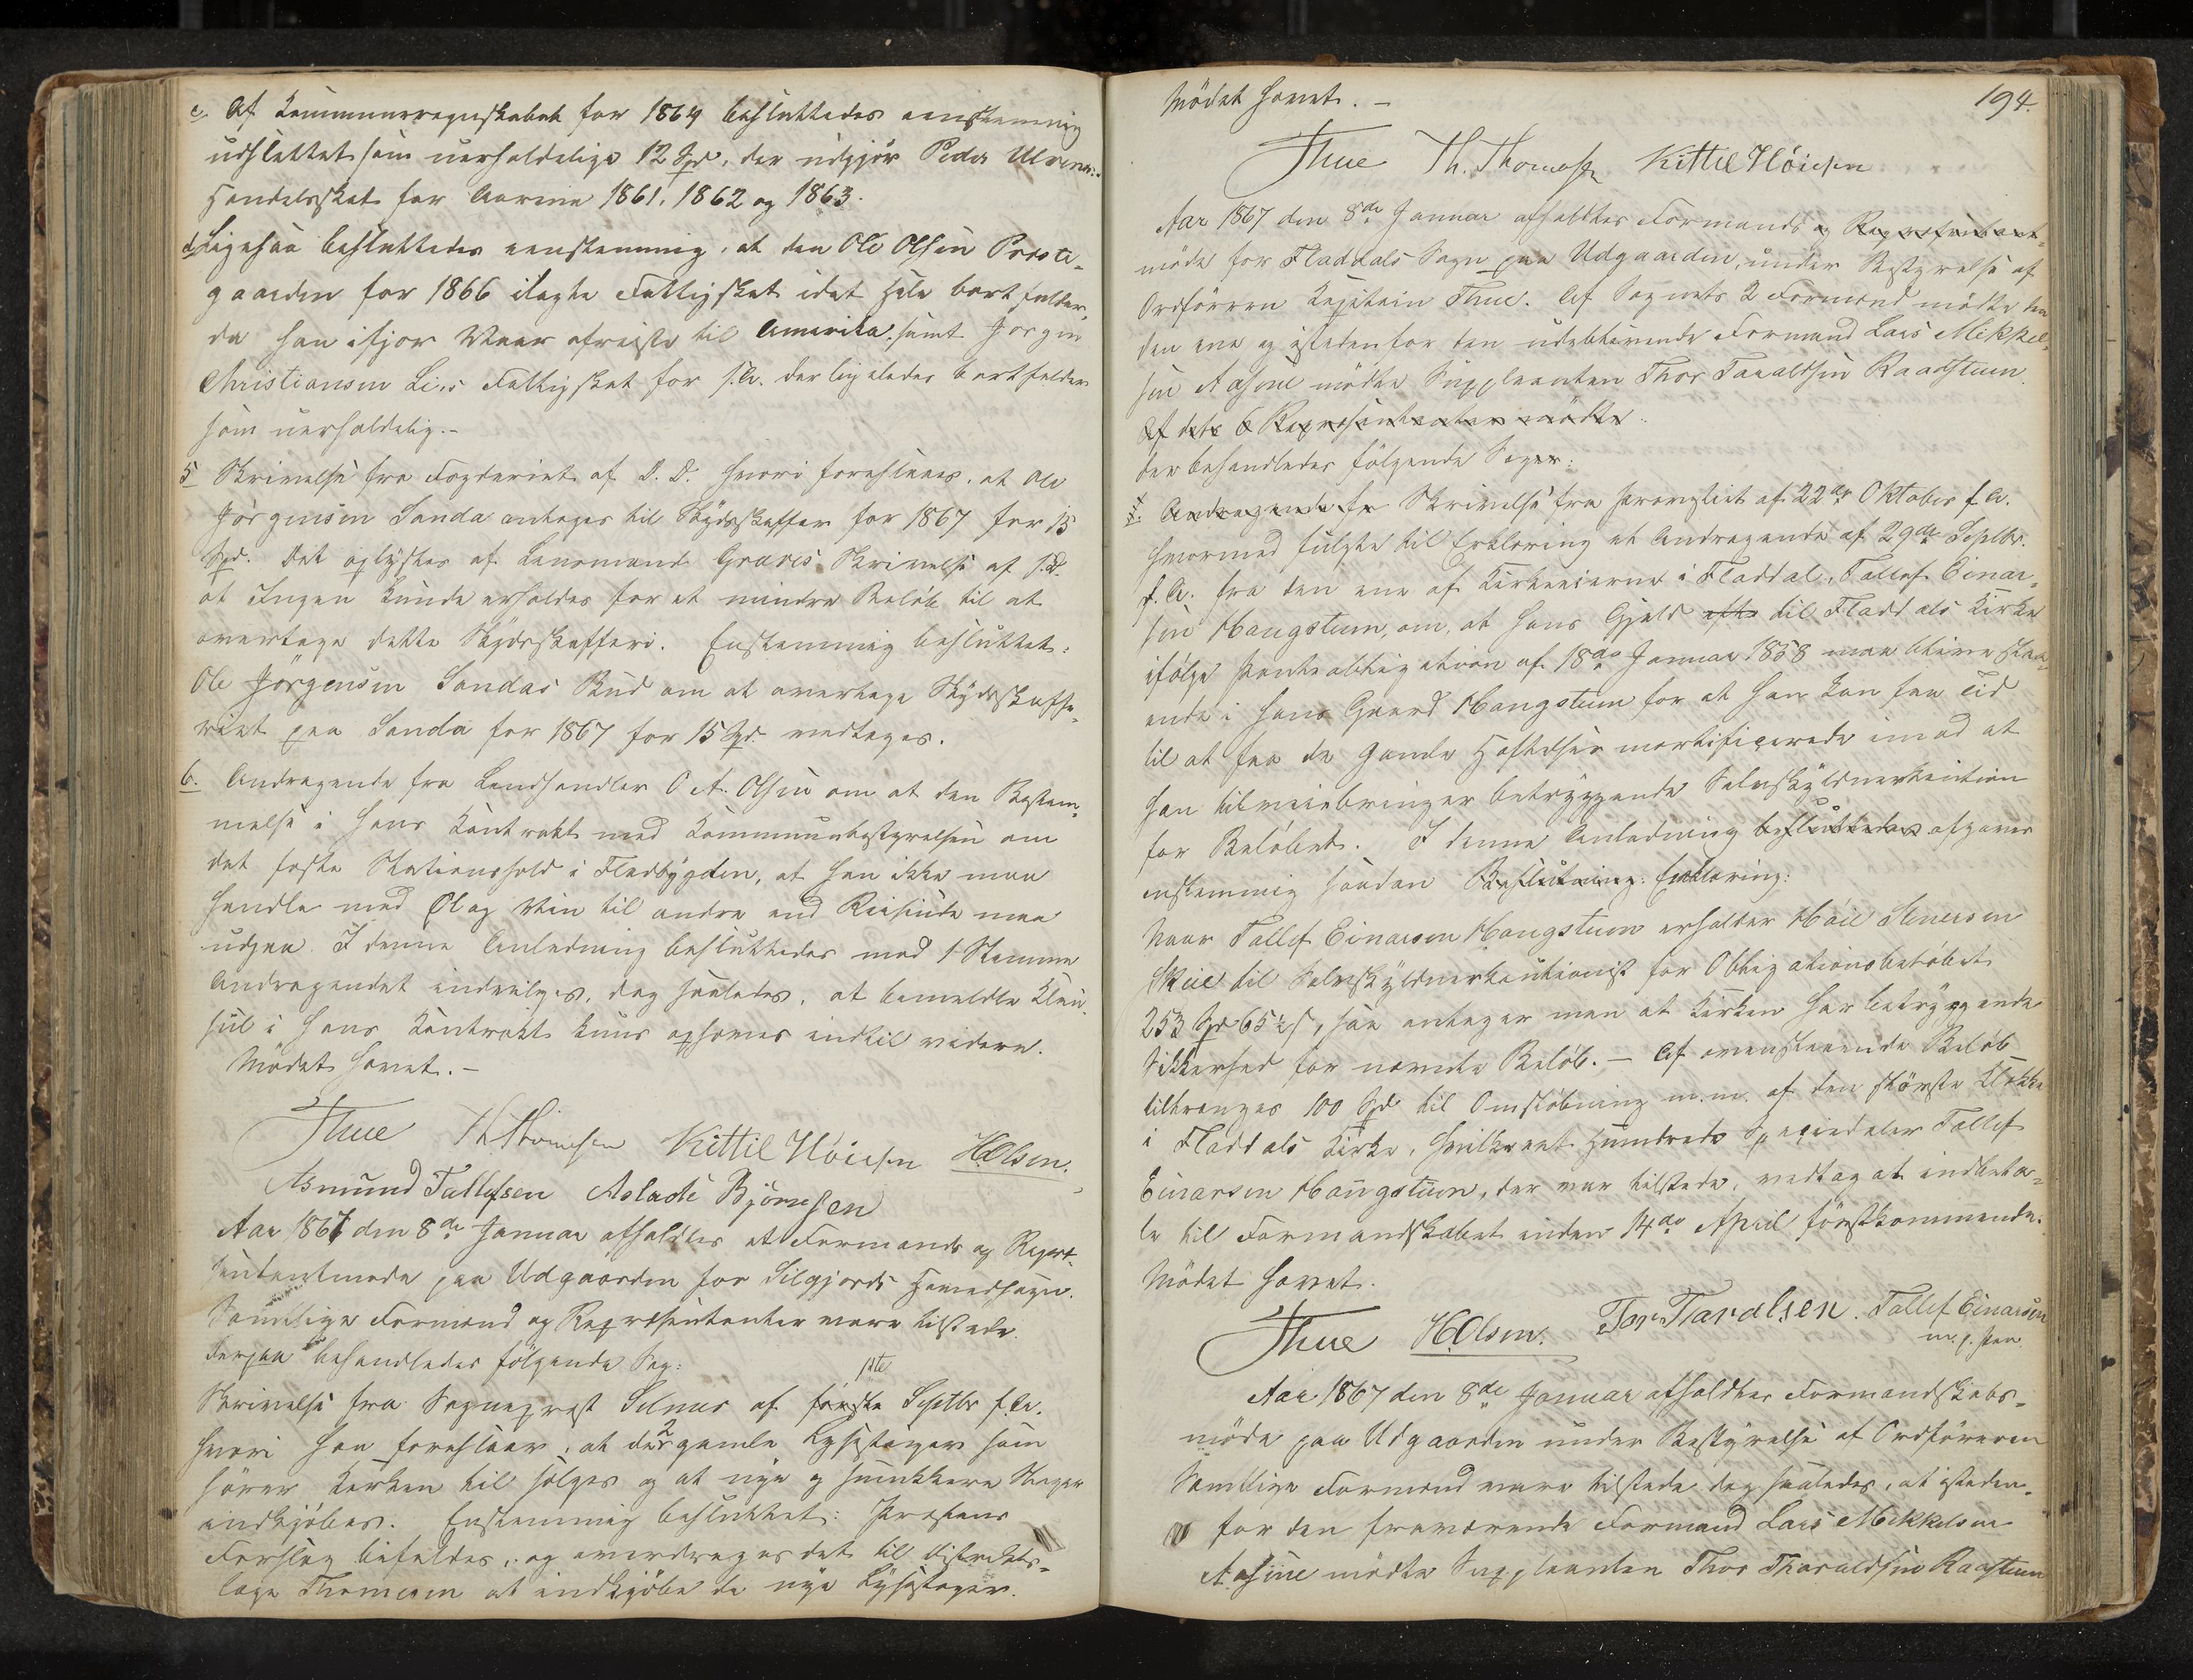 c. Af Kommuneregnskabet for 1864 besluttedes eenstemmig
udslettet som uerholdelige 12 Spd, der udgjør Peder Ulvenes
Handelsskat for Aarene 1861, 1862 og 1863.
d. Ligesaa besluttedes eenstemmig, at den Ole Olsen Præste-
gaarden for 1866 ilagte Fattigskat idet Hele bortfalder,
da han ifjor Vaar afreiste til Amerika, samt Jørgen
Christiansen Lies Fattigskat for s.A. der ligeledes bortfalder
som uerholdelig.-
5 Skrivelse fra Fogderiet af D. D. hvori foreslaaes, at Ole
Jørgensen Sanda antages til Skydsskaffer for 1867 for 15
Spd. Det oplystes af Lensmand Gravis Skrivelse af s.D.
at Ingen kunde erholdes for et mindre Beløb til at
overtage dette Skydsskafferi. Enstemmig besluttet:
Ole Jørgensen Sandas Bud om at overtage Skydsskaffe-
riet paa Sanda for 1867 for 15 Spd. vedtages.
6. Andragende fra Landhandler O A. Olsen om at den Bestem-
melse i hans Kontrakt med Kommunebestyrelsen om
det faste Stationshold i Fladbygden, at han ikke maa
handle med Øl og Vin til andre end Reisende maa
udgaa. I denne Anledning besluttedes med 1 Stemme
Andragendet indvilges, dog saaledes, at bemeldte Klau-
sul i hans Kontrakt kuns ophæves indtil videre.
Mødet hævet.-
Thue Th. Thomesen Kittil Høiesen H.Olsen.
Asmund Tallefsen Aslache Bjørnsen
Aar 1867 den 8de Januar afholdtes et Formands og Repræ-
sentantmøde paa Udgaarden for Silgjords Hovedsogn.
Samtlige Formænd og Repræsentanter vare tilstede.
Derpaa behandledes følgende Sag:
1ste
Skrivelse fra Sogneprest Selmer af første Septbr f.A.
hvori han foreslaar, at de 2 gamle Lysestager som
hører Kirken til sælges og at nye og smukkere Stager
indkjøbes. Enstemmig besluttet: Præstens
Forslag bifaldes, og overdrages det til Distrikts-
læge Thomesen at indkjøbe de nye Lysestager.
194.
Mødet hævet.-
Thue Th. Thomesen Kittil Høiesen
Aar 1867 den 8de Januar afholdtes Formands og Repræsentant-
møde for Fladdals Sogn paa Udgaarden, under Bestyrelse af
Ordføreren Kapitain Thue. Af Sognets 2 Formænd mødte kun
den ene og istedenfor den udeblivende Formand Lars Mikkel-
sen Aasine mødte Suppleanten Thor Taraldsen Raastuen.
Af dets 6 Repræsentanter mødte
Der behandledes følgende Sager:
1. Andragende fra Skrivelse fra Provstiet af 22de Oktober f.A.
hvormed fulgte til Erklæring et Andragende af 29de Septbr.
f.A. fra den ene af Kirkeeierne i Fladdal, Tallef Einar-
sen Haugstuen, om, at hans Gjæld efte til Fladdals Kirke
ifølge Panteobligation af 18de Januar 1858 maa blive staa-
ende i hans Gaard Haugstuen for at han kan faa Tid
til at faa de gamle Heftelser mortificerede imod at
han tilveiebringer betryggende Selvskyldnerkaution
for Beløbet. I denne Anledning besluttedes afgaves
enstemmig saadan Beslutning: Erklæring:
Naar Tallef Einarsen Haugstuen erholder Høie Steinersen
Skeie til Selvskyldnerkautionist for Obligationsbeløbet
253 Spd 65½ s, saa antager man at Kirken har betryggende
Sikkerhed for nævnte Beløb. - Af ovenstaaende Beløb
tiltrænges 100 Spd til Omstøbning m.m. af den største Klokke
i Fladdals Kirke, hvilke et Hundrede Speciedaler Tallef
Einarsen Haugstuen, der var tilstede, vedtog at indbeta-
le til Formandskabet inden 14de April førstkommende.
Mødet hævet.
Thue H.Olsen. Tor Taralsen. Tallef Einarsen
m. p. Pen.
Aar 1867 den 8de Januar afholdtes Formandskabs-
møde paa Udgaarden under Bestyrelse af Ordføreren
Samtlige Formænd vare tilstede dog saaledes, at isteden-
for den fraværende Formand Lars Mikkelsen
Aasine mødte Suppleanten Thor Tharaldsen Raastuen